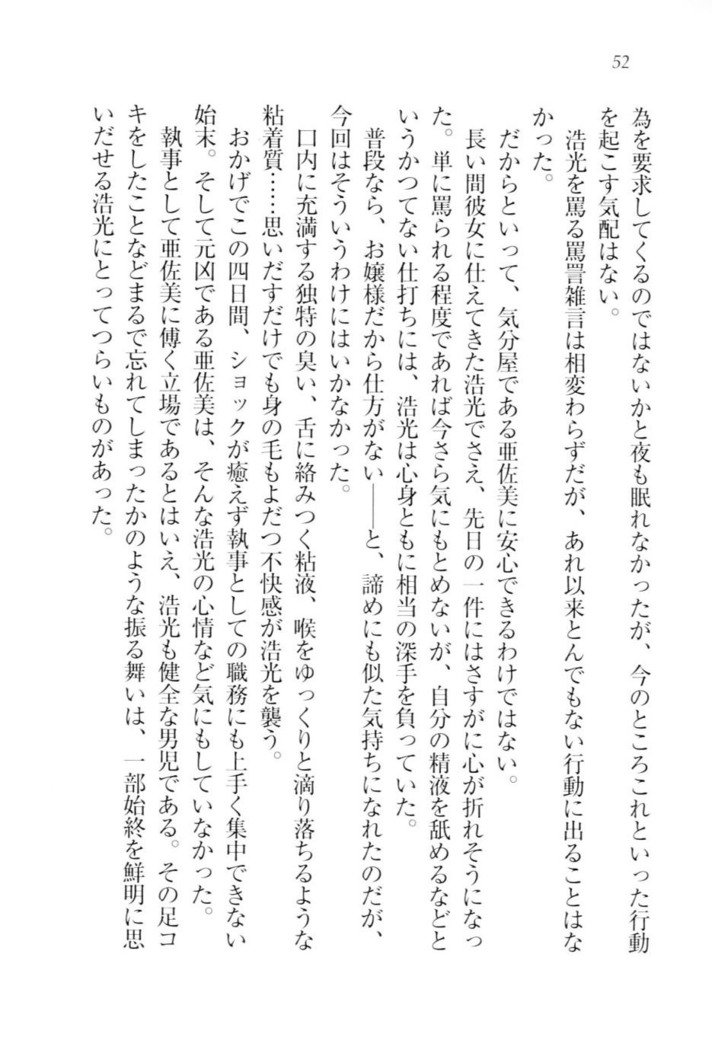 52
為を要求してくるのではないかと夜も眠れなかったが、今のところこれといった行動
を起こす気配はない。
　浩光を罵る罵詈雑言は相変わらずだが、あれ以来とんでもない行動に出ることはな
かった。
　だからといって、気分屋である亜佐美に安心できるわけではない。
　長い間彼女に仕えてきた浩光でさえ、先日の一件にはさすがに心が折れそうになっ
た。単に罵られる程度であれば今さら気にもとめないが、自分の精液を舐めるなどと
いうかつてない仕打ちには、浩光は心身ともに相当の深手を負っていた。
　普段なら、お嬢様だから仕方がない――と、諦めにも似た気持ちになれたのだが、
今回はそういうわけにはいかなかった。
　口内に充満する独特の臭い、舌に絡みつく粘液、喉をゆっくりと滴り落ちるような
粘着質……思いだすだけでも身の毛もよだつ不快感が浩光を襲う。
　おかげでこの四日間、ショックが癒えず執事としての職務にも上手く集中できない
始末。そして元凶である亜佐美は、そんな浩光の心情など気にもしていなかった。
　執事として亜佐美に傅く立場であるとはいえ、浩光も健全な男児である。その足コ
キをしたことなどまるで忘れてしまったかのような振る舞いは、一部始終を鮮明に思
いだせる浩光にとってつらいものがあった。